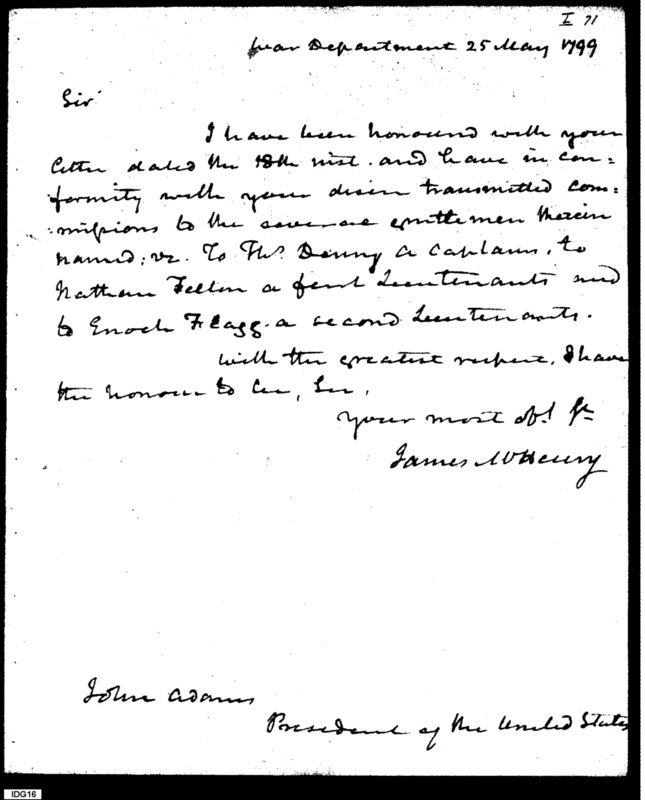 I 71
War Department 25 May 1799
Sir
I have been honoured with your
letter dated the 18th inst. and have in con=
formity with your desire transmitted com=
missions to the several gentlemen therein
named: vz. To Thos. Denny a Captains, to
Nathan Felton a first Lieutenants and
to Enoch Flagg. a second Lieutenants.
With the greatest respect, I have
the honour to be, Sir,
Your most obt. St.
James McHenry
John Adams
President of the United States
IDG16